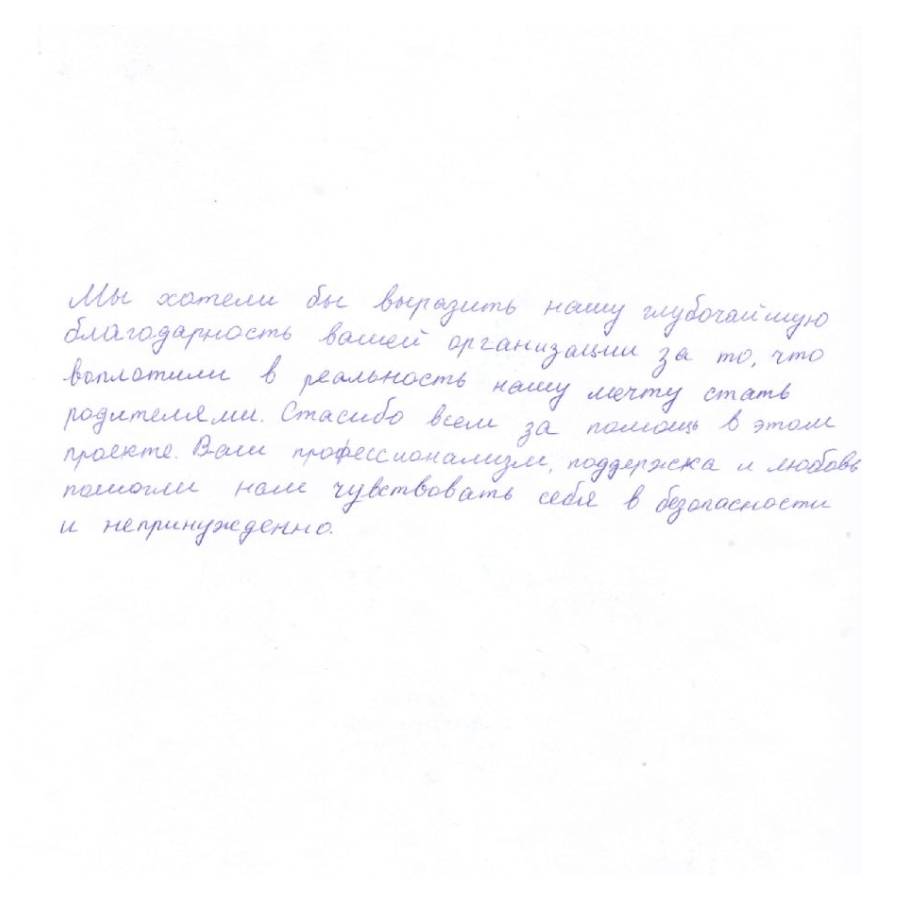 Мы хотели бы выразить нашу глубочайшую
благодарность вашей организации за то, что
воплотили в реальность нашу мечту стать
родителями. Спасибо всем за помощь в этом
проекте. Ваш профессионализм, поддержка и любовь
помогли нам чувствовать себя в безопасности
и непринужденно.